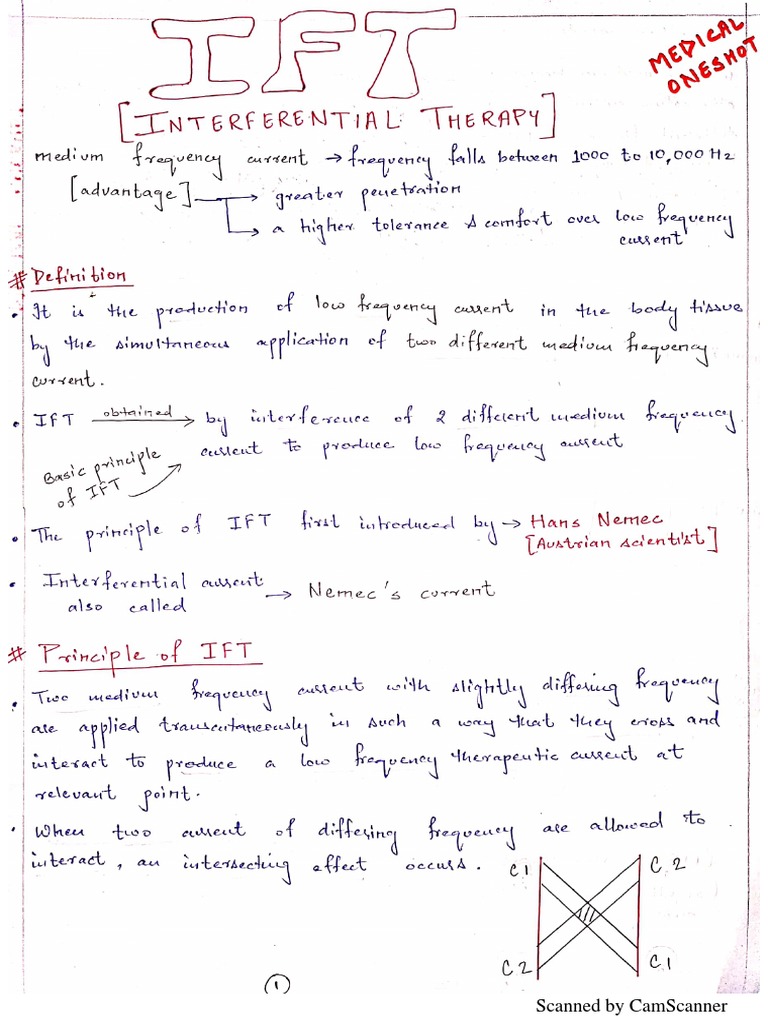 IFT
MEDICAL
ONESHOT
[INTERFERENTIAL THERAPY]
medium frequency current → frequency falls between 1000 to 10,000 Hz
[advantage] → greater penetration
→ a higher tolerance & comfort over low frequency
current
# Definition
• It is the production of low frequency current in the body tissue
by the simultaneous application of two different medium frequency
current.
• IFT obtained → by interference of 2 different medium frequency
current to produce low frequency current
Basic principle
of IFT
• The principle of IFT first introduced by → Hans Nemec
[Austrian scientist]
• Interferential current
also called → Nemec's current
# Principle of IFT
• Two medium frequency current with slightly differing frequency
are applied transcutaneously in such a way that they cross and
interact to produce a low frequency therapeutic current at
relevant point.
• When two current of differing frequency are allowed to
interact, an intersecting effect occurs.
C1 C2
C2 C1
1
Scanned by CamScanner